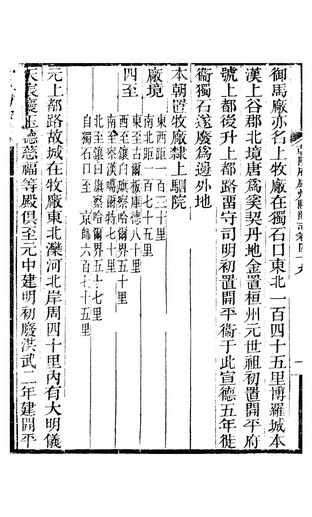 御馬廠亦名上牧廠在獨石口東北一百四十五里博羅城本
漢上谷郡北境唐爲奚契丹地金置桓州元世祖初置開平府
號上都後升上都路留守司明初置開平衞于此宣德五年徙
衞獨石遂廢爲邊外地
本朝置牧廠隸上駟院
廠境
東西距一百三十里
南北距一百七十五里
四至
東至古爾板庫德八十里
西至鑲白旗察哈爾界五十里
南至察漢噶爾特七十里
北至鑲白旗察哈爾界五十七里
自獨石口至 京師六百七十五里
元上都路故城在牧廠東北灤河北岸周四十里內有大明儀
天表慶玉德慈福等殿俱至元中建明初廢洪武二年建開平